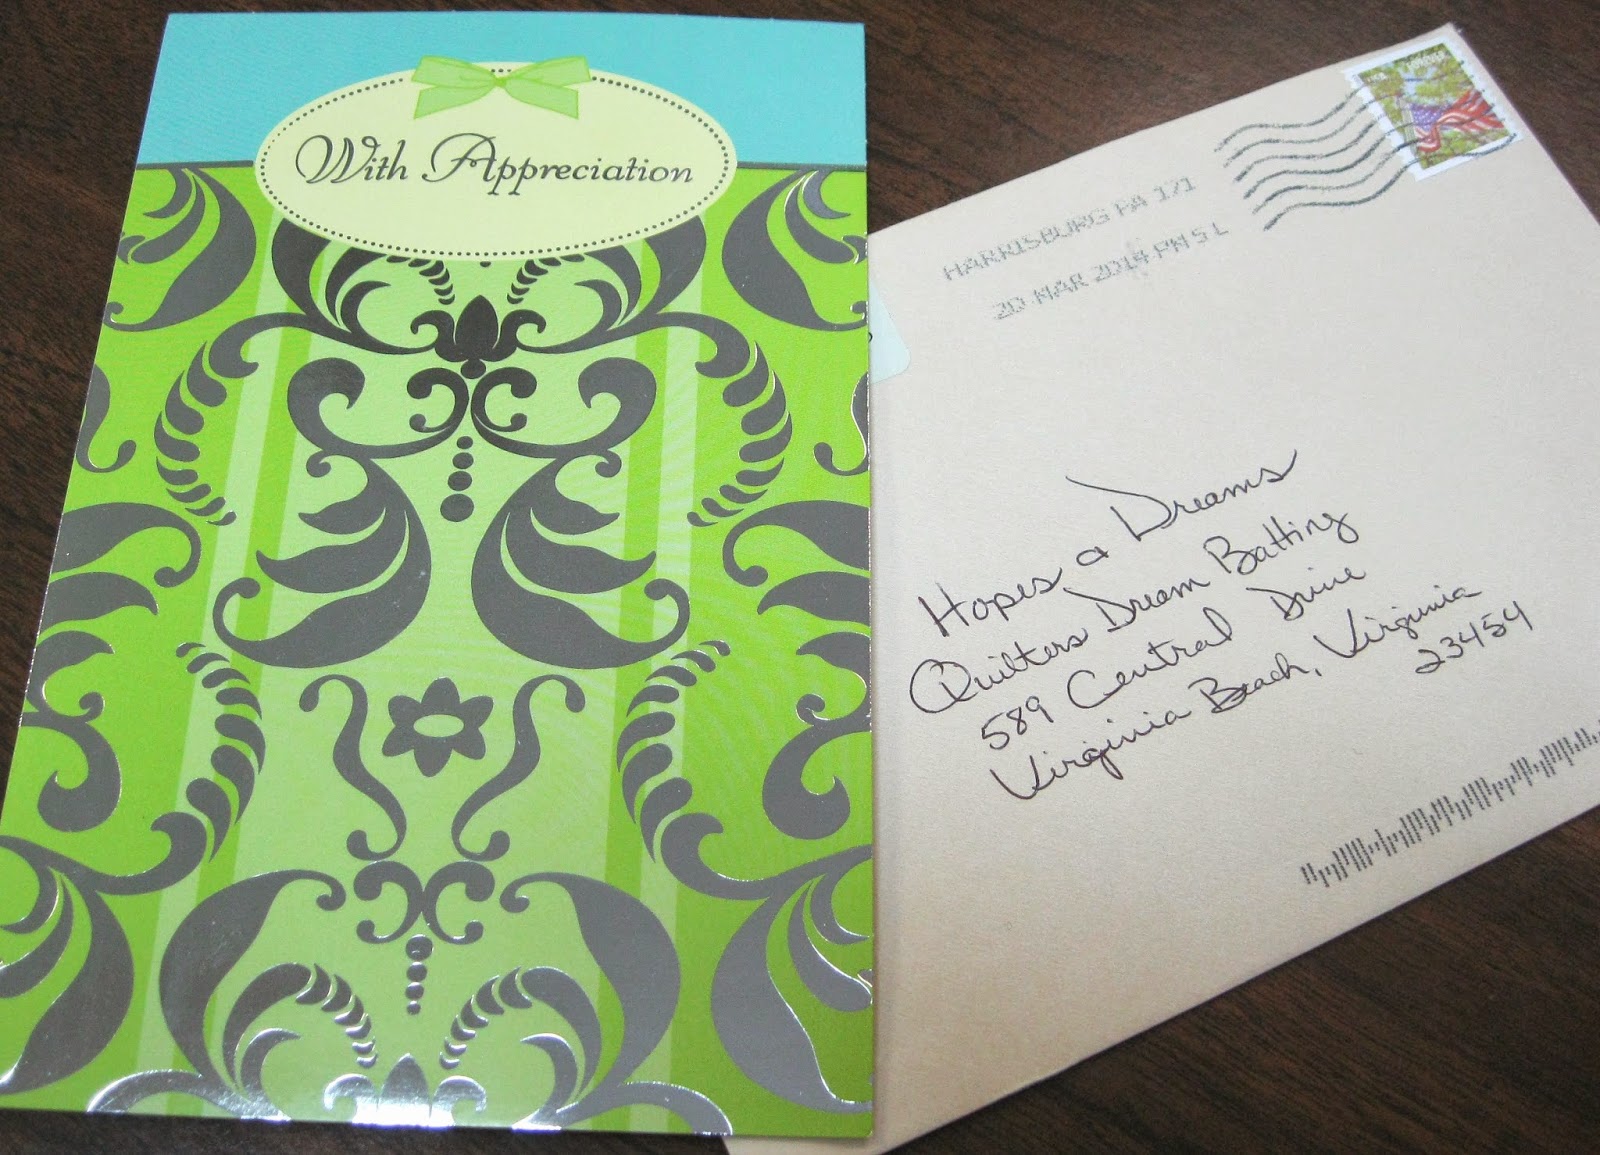 With Appreciation
HARRISBURG PA 171
20 MAR 2014 PM 5 L
FOREVER
Hopes & Dreams
Quilters Dream Batting
589 Central Drive
Virginia Beach, Virginia
23454